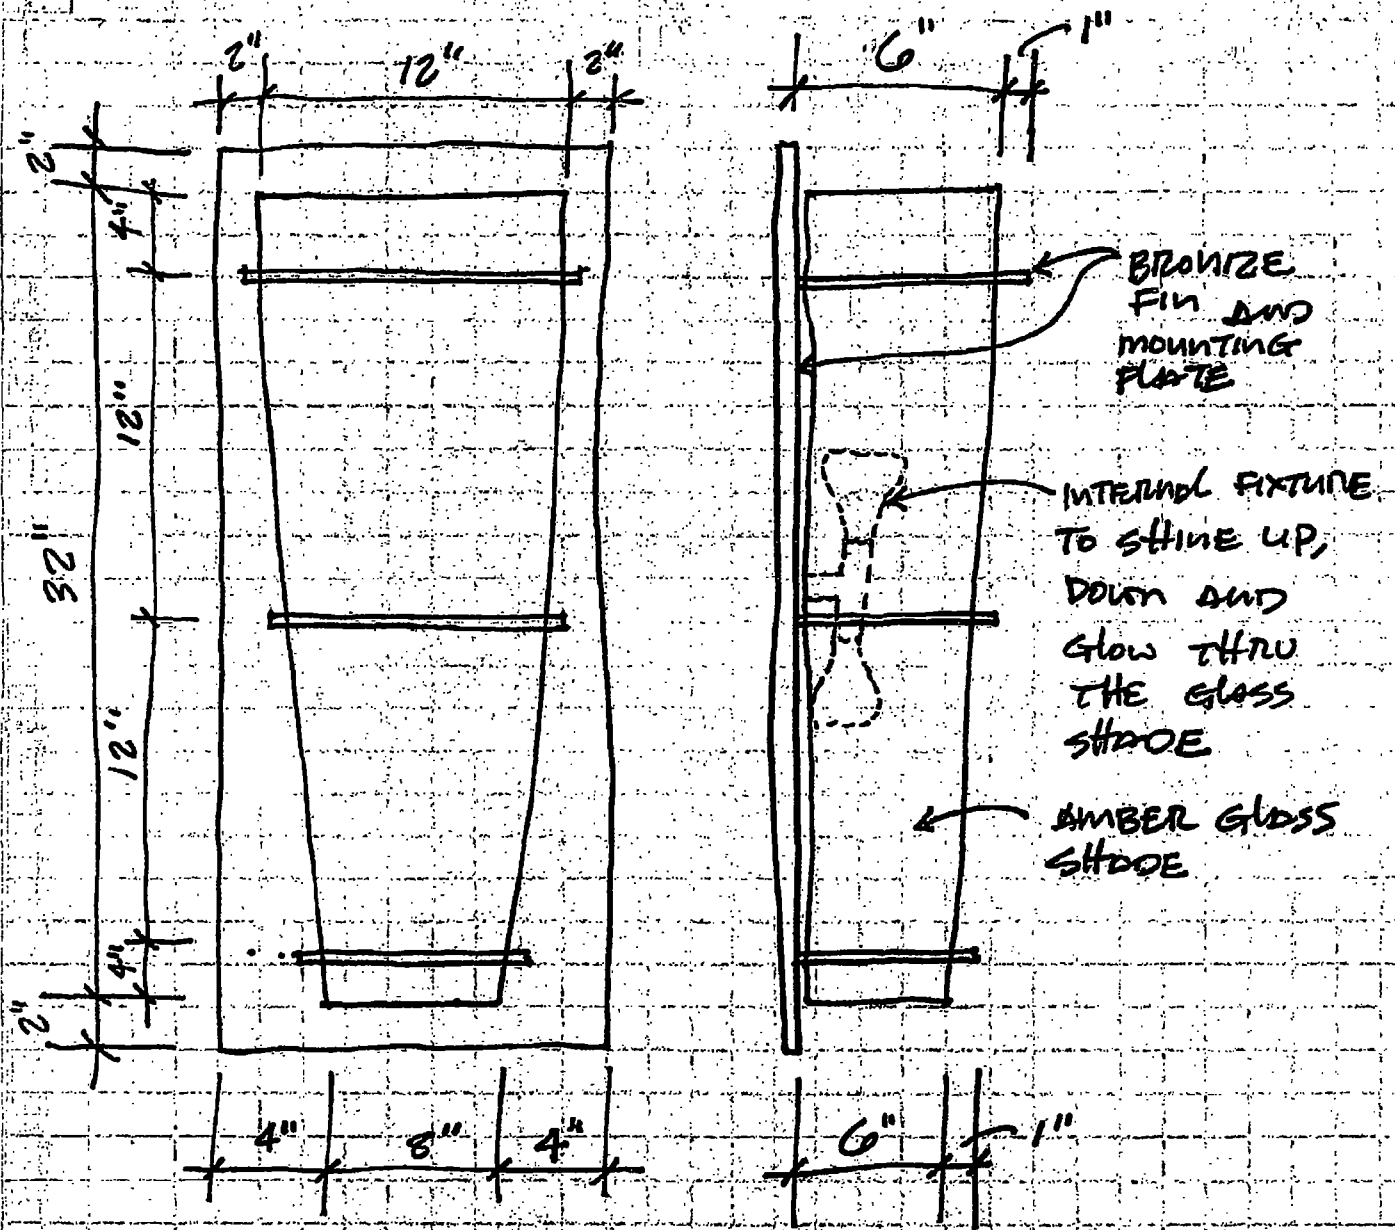 2" 12" 2"
6" 1"
2"
4"
12"
32"
12"
4"
2"
BRONZE
FIN AND
MOUNTING
PLATE
INTERNAL FIXTURE
TO SHINE UP,
DOWN AND
GLOW THRU
THE GLASS
SHADE
AMBER GLASS
SHADE
4" 8" 4"
6" 1"